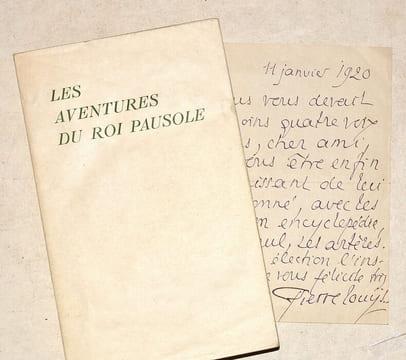 LES
AVENTURES
DU ROI PAUSOLE
11 janvier 1920
us vous devait
oins quatre voix
s, cher ami,
ous être enfin
issant de lui
onné, avec les
n encyclopédie,
ul, ses artères.
élection l'ins-
e vous félicite
Pierre Louÿs